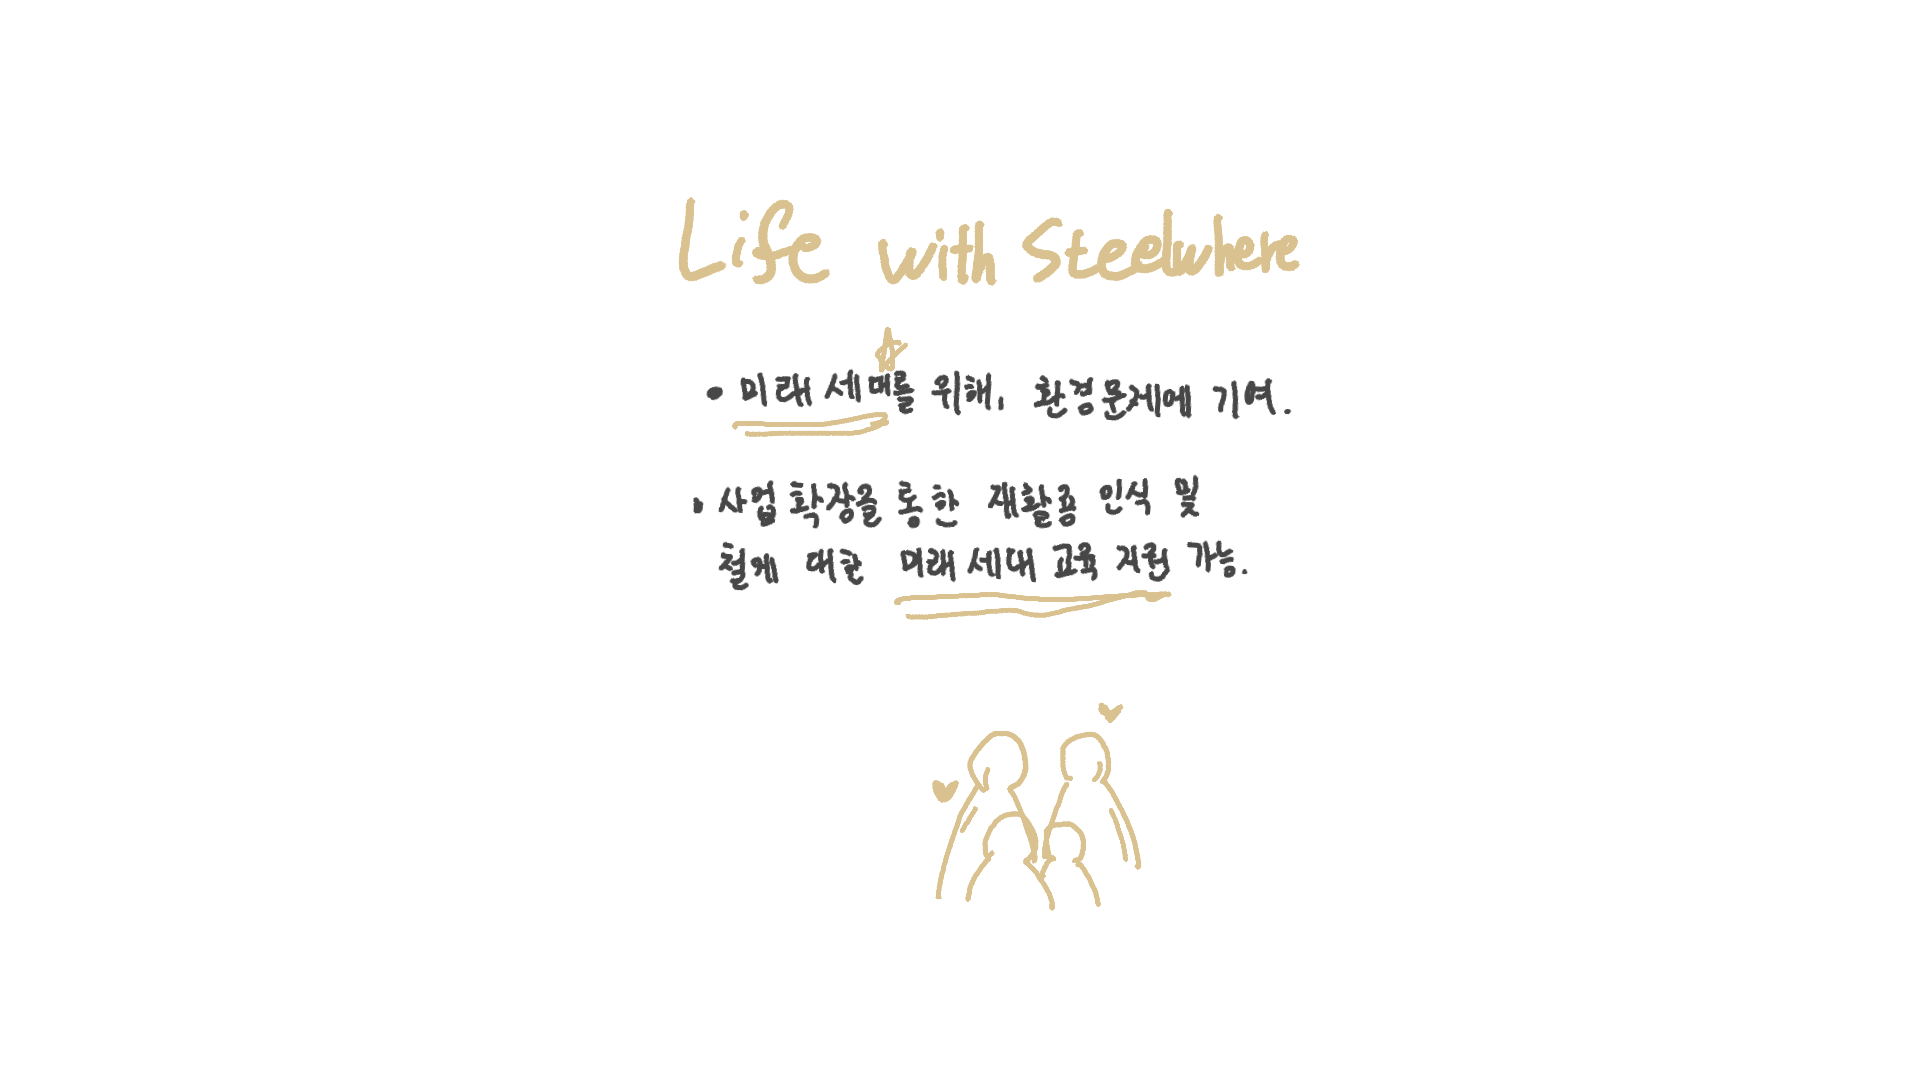 Life with Steelwhere
• 미래 세대를 위해, 환경문제에 기여.
• 사업 확장을 통한 재활용 인식 및
철에 대한 미래 세대 교육 지원 가능.